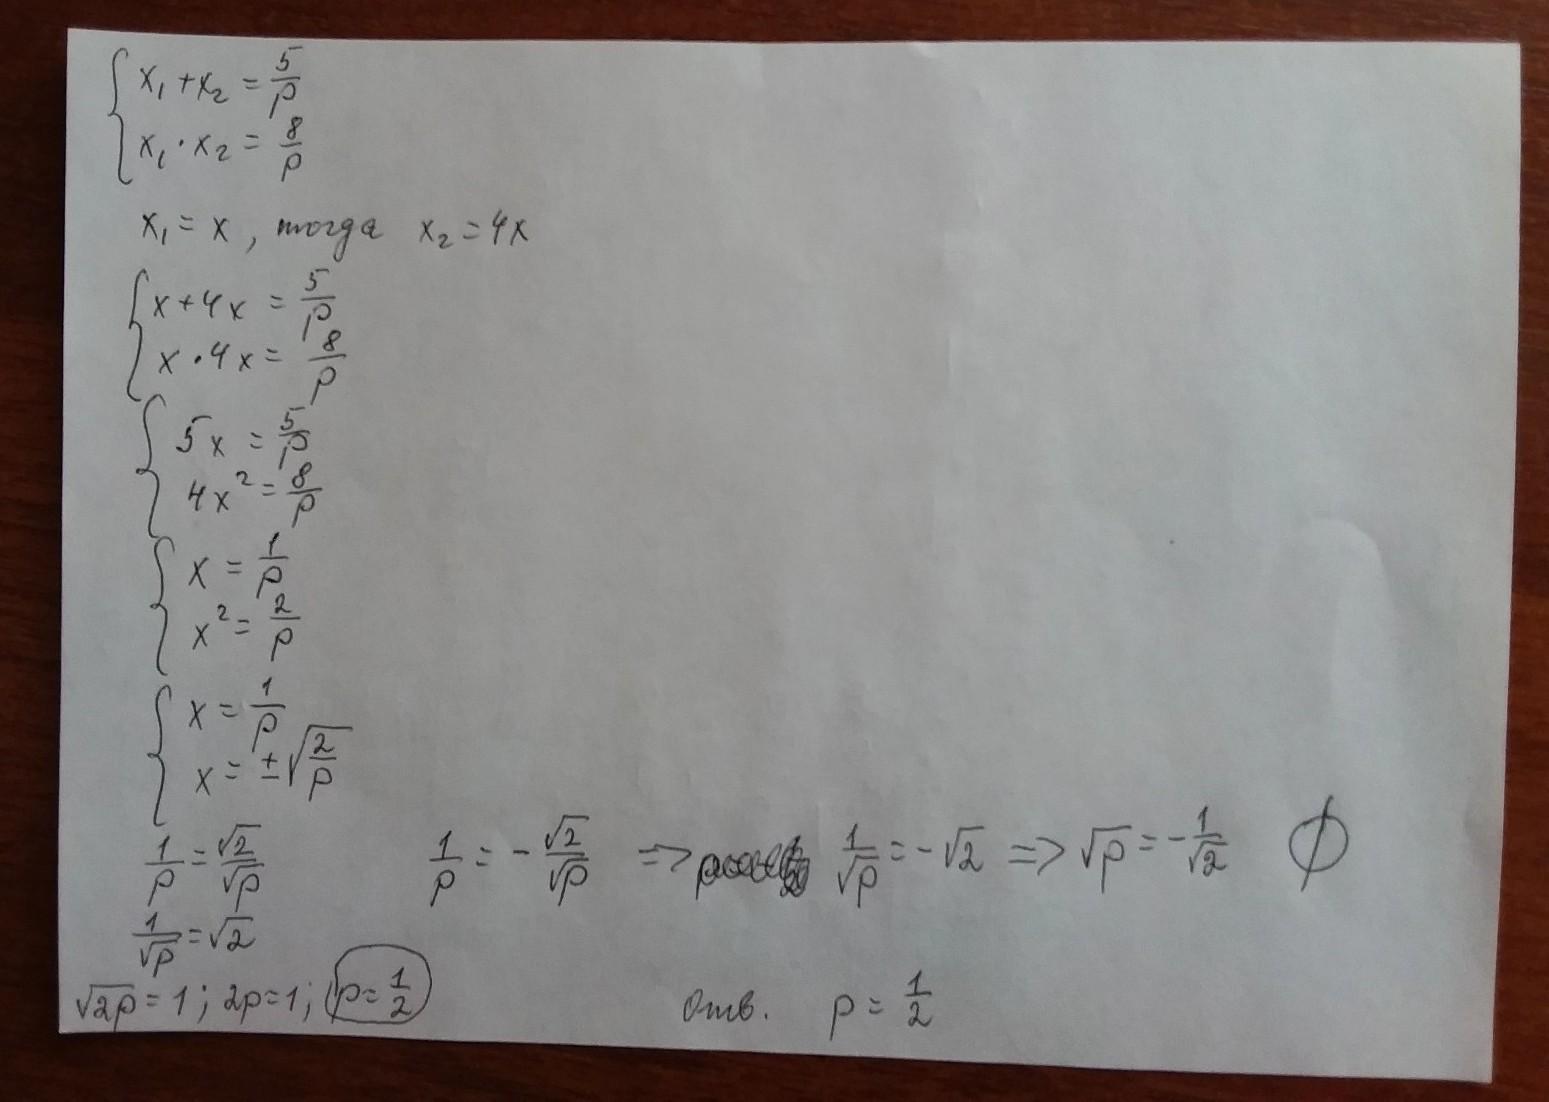 { x₁ + x₂ = 5/p
{ x₁ · x₂ = 8/p
x₁ = x, тогда x₂ = 4x
{ x + 4x = 5/p
{ x · 4x = 8/p
{ 5x = 5/p
{ 4x² = 8/p
{ x = 1/p
{ x² = 2/p
{ x = 1/p
{ x = ±√(2/p)
1/p = √2/√p
1/p = -√2/√p => 1/√p = -√2 => √p = -1/√2 ∅
1/√p = √2
√2p = 1; 2p = 1; p = 1/2
Отв. p = 1/2